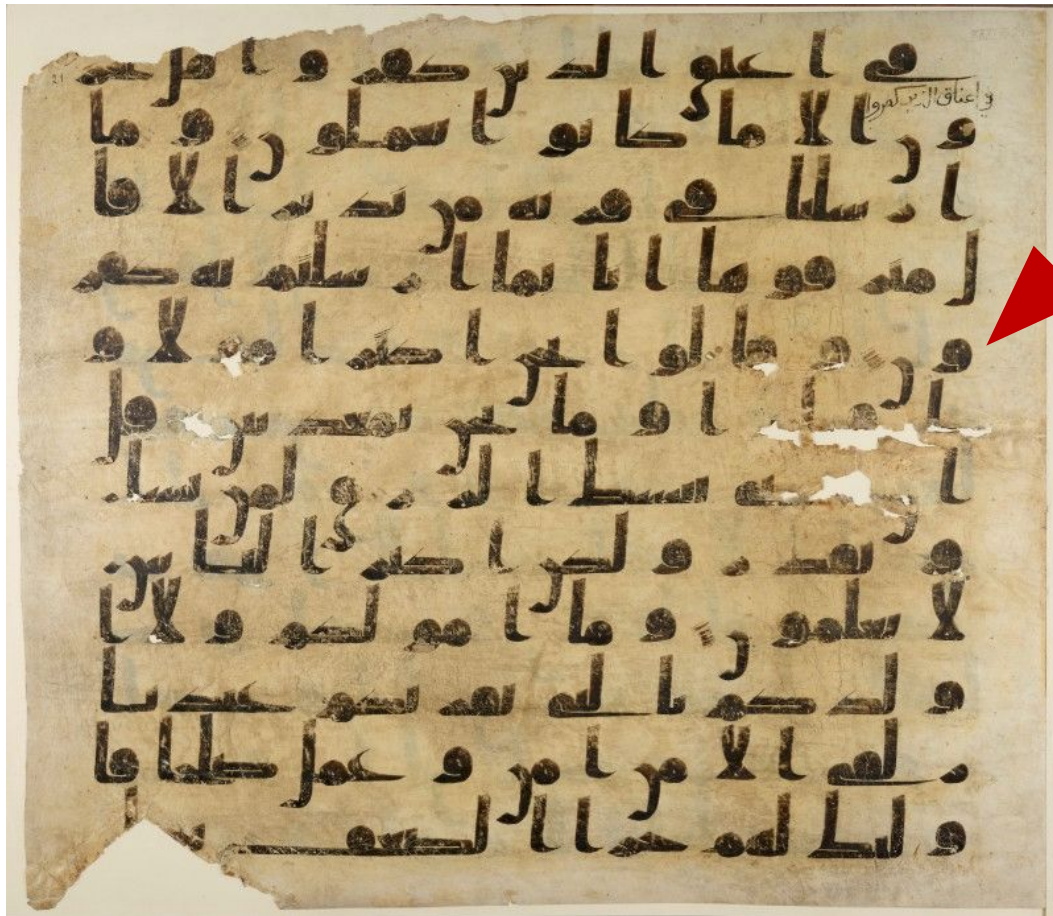 21
في اعنق الذين كفروا هل يجز
في اعناق الذين كفروا
ون الا ما كانوا يعملون وما
ارسلنا في قرية من نذير الا قا
ل مترفوها انا بما ارسلتم به كفر
ون وقالوا نحن اكثر امولا و
اولدا وما نحن بمعذبين قل
ان ربي يبسط الرزق لمن يشا
و يقدر ولكن اكثر الناس
لا يعلمون وما امولكم ولا ا
ولدكم بالتي تقربكم عندنا
زلفى الا من امن وعمل صلحا فا
ولئك لهم جزا الضعف بما